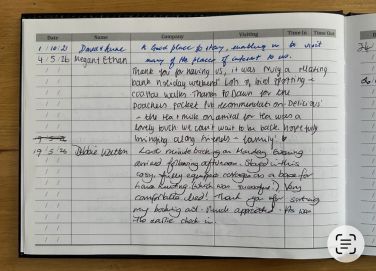 Date Name Company Visiting Time In Time Out
1 10 21 Dave & Anne A Good place to stay, enabling us to visit
many of the places of interest to us.
4 5 26 Megan & Ethan Thank you for having us, it was a relaxing
bank holiday weekend both of bird spotting &
walks. Thanks to Dawn for the
Poachers Pocket recommendation - Delicious!
- the tea & milk on arrival for tea was a
lovely touch we can't wait to be back hopefully
bringing along friends & family!
19 5 26 Debbie Last minute booking on Monday evening
arrived following afternoon. Stayed in this
cosy, fully equipped cottage as a base for
house hunting (which was successful!) Very
comfortable bed! Thank you for sorting
my booking out. Much appreciated. As was
the earlier check in.